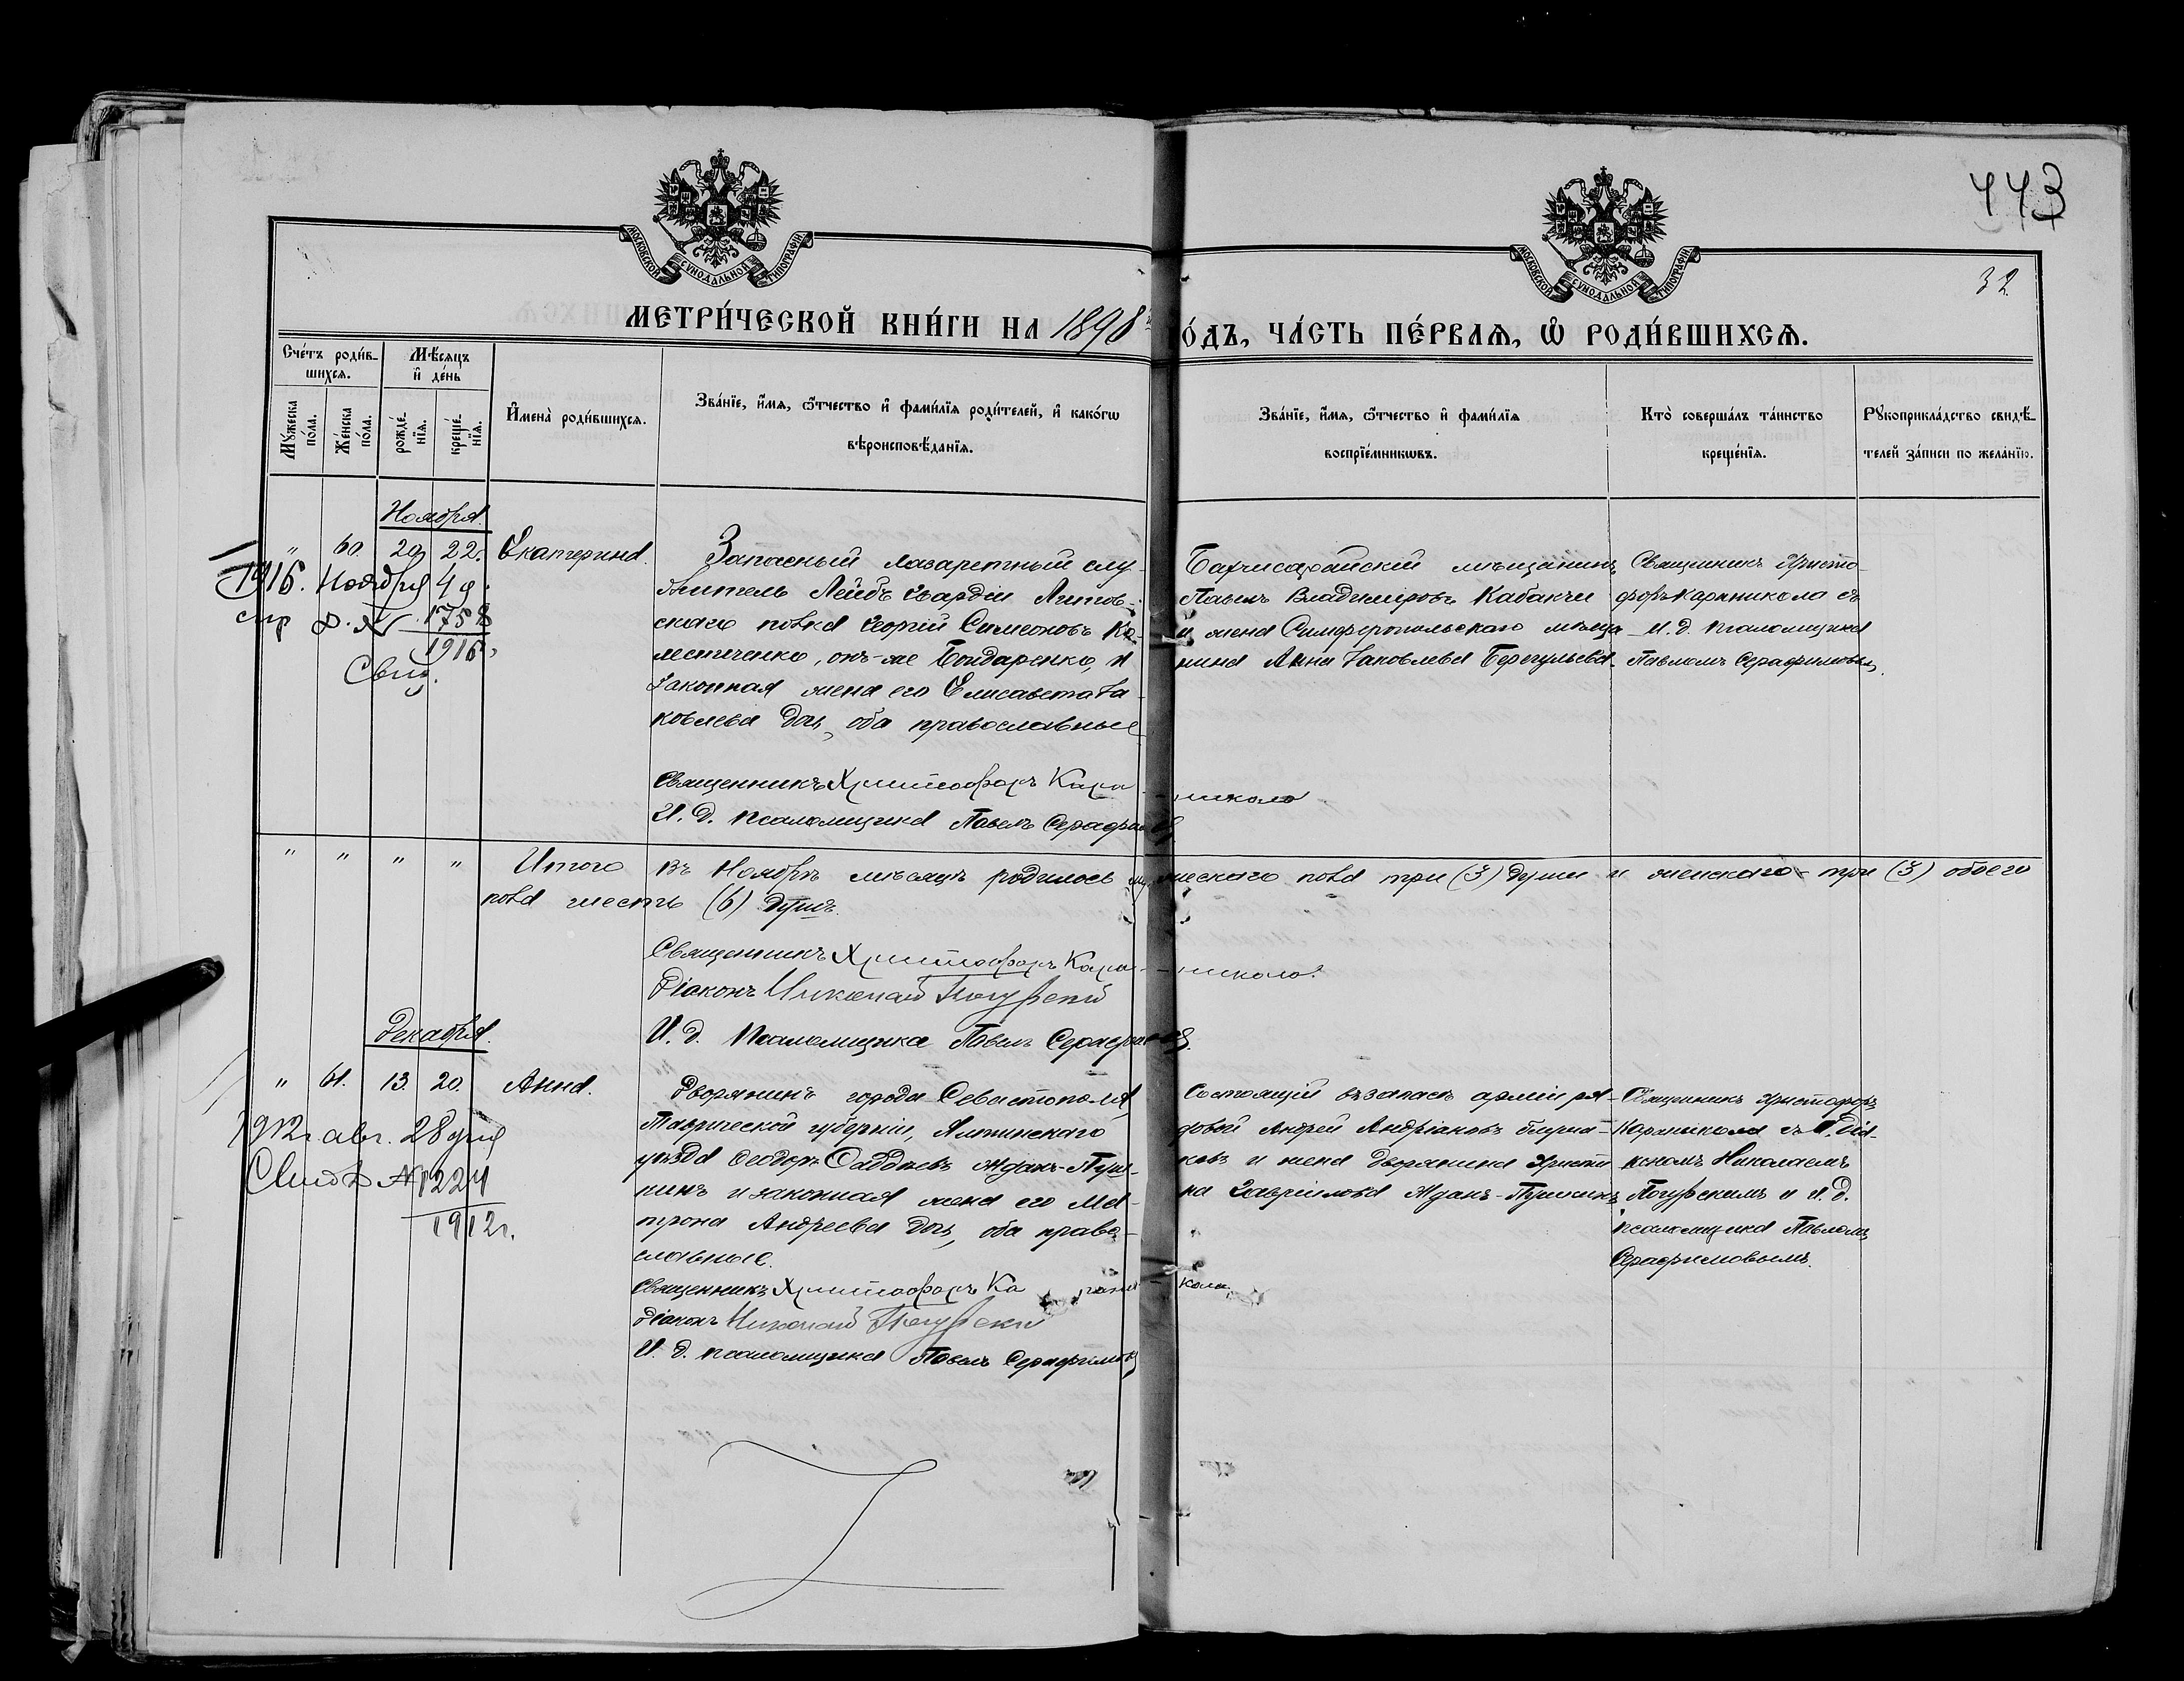 443
32
МОСКОВСКОЙ СѴНОДАЛЬНОЙ ТИПОГРАФІИ
МОСКОВСКОЙ СѴНОДАЛЬНОЙ ТИПОГРАФІИ
МЕТРИ́ЧЕСКОЙ КНИ́ГИ НА 1898 О́ДЪ, ЧА́СТЬ ПЕ́РВАѦ, Ѡ҆ РОДИ́ВШИХСѦ.
Сче́тъ роди́в-
шихсѧ.
Мѣ́сѧцъ
и҆ де́нь
Мꙋ́жеска
по́ла.
Же́нска
по́ла.
рожде́-
нїѧ.
креще́-
нїѧ.
И҆мена̀ роди́вшихсѧ.
Зва́нїе, и҆́мѧ, ѻ҆́тчество и҆ фами́лїѧ роди́телей, и҆ како́гѡ
вѣроисповѣ́данїѧ.
Зва́нїе, и҆́мѧ, ѻ҆́тчество и҆ фами́лїѧ
воспрїе́мникѡвъ.
Кто̀ соверша́лъ та́инство
креще́нїѧ.
Рꙋкоприкла́дство свидѣ́-
телей за́писи по жела́нїю.
Ноября.
" 60. 20 22. Екатерина.
1916. Ноября 4 д.
№ 1758
1916.
Свид.
Запасный лазаретный слу-
житель Лейбъ Гвардіи Литов-
скаго полка Георгій Симеоновъ Ко-
лестиченко, онъ-же Бондаренко, и
законная жена его Елисавета Іа-
ковлева дочь, оба православные
Священникъ Христофоръ Кара-николо.
И. д. псаломщика Павелъ Серафимовъ
Бахчисарайскій мѣщанинъ
Павелъ Владиміровъ Кабакчи
и жена Симферопольскаго мѣща-
нина Анна Іаковлева Берегульева.
Священникъ Христо-
форъ Караникола съ
И. д. псаломщика
Павломъ Серафимовымъ.
" " " " Итого въ Ноябрѣ мѣсяцѣ родилось мужескаго пола три (3) души и женскаго - три (3) обоего
пола шесть (6) душъ.
Священникъ Христофоръ Кара-николо.
Діаконъ Николай Погурскій
И. д. Псаломщика Павелъ Серафимовъ.
Декабря.
" 61. 13. 20. Анна.
1912г. авг. 28 дня
Свид № 1224
1912г.
Дворянинъ города Севастополя
Таврической губерніи, Ялтинскаго
уѣзда Ѳеодоръ Ѳаддѣевъ Жданъ-Пуш-
кинъ и законная жена его Мат-
рона Андреева дочь, оба право-
славные.
Священникъ Христофоръ Караникола
Діаконъ Николай Погурскій
И. д. псаломщика Павелъ Серафимовъ
Состоящій въ запасѣ арміи ря-
довой Андрей Андріановъ
и жена дворянина Христи-
на Гавріилова Жданъ-Пушкинъ
Священникъ Христофоръ
Караникола съ Діа-
кономъ Николаемъ
Погурскимъ и И. д.
псаломщика Павломъ
Серафимовымъ.